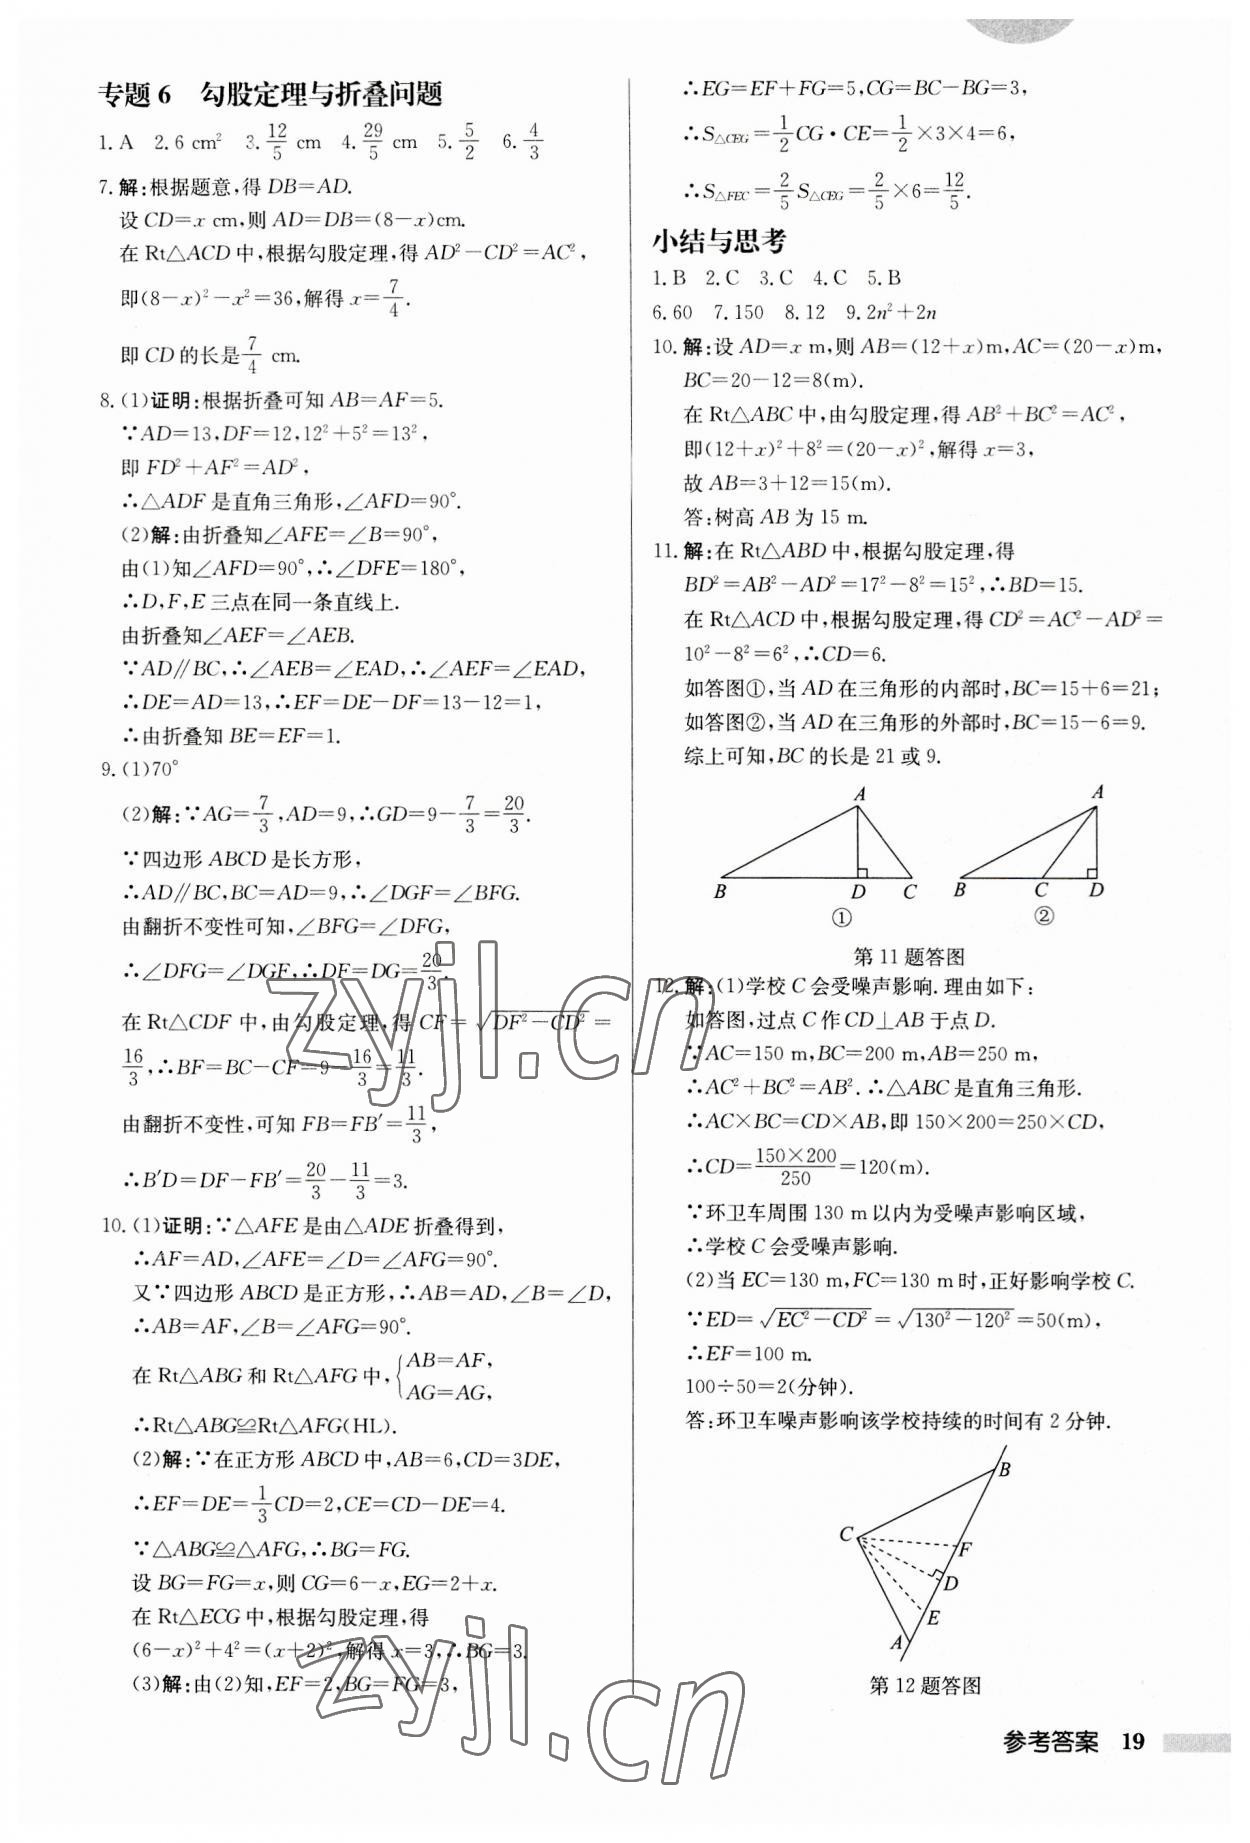 专题 6　勾股定理与折叠问题
1. A　2. 6 cm²　3. 12/5 cm　4. 29/5 cm　5. 5/2　6. 4/3
7. 解:根据题意,得 DB=AD.
设 CD=x cm,则 AD=DB=(8-x)cm.
在 Rt△ACD 中,根据勾股定理,得 AD²-CD²=AC²,
即(8-x)²-x²=36,解得 x=7/4.
即 CD 的长是 7/4 cm.
8. (1)证明:根据折叠可知 AB=AF=5.
∵AD=13,DF=12,12²+5²=13²,
即 FD²+AF²=AD²,
∴△ADF 是直角三角形,∠AFD=90°.
(2)解:由折叠知∠AFE=∠B=90°,
由(1)知∠AFD=90°,∴∠DFE=180°,
∴D,F,E 三点在同一条直线上.
由折叠知∠AEF=∠AEB.
∵AD∥BC,∴∠AEB=∠EAD,∴∠AEF=∠EAD,
∴DE=AD=13,∴EF=DE-DF=13-12=1,
∴由折叠知 BE=EF=1.
9. (1)70°
(2)解:∵AG=7/3,AD=9,∴GD=9-7/3=20/3.
∵四边形 ABCD 是长方形,
∴AD∥BC,BC=AD=9,∴∠DGF=∠BFG.
由翻折不变性可知,∠BFG=∠DFG,
∴∠DFG=∠DGF,∴DF=DG=20/3.
在 Rt△CDF 中,由勾股定理,得 CF=√(DF²-CD²)=
16/3,∴BF=BC-CF=9-16/3=11/3.
由翻折不变性,可知 FB=FB′=11/3,
∴B′D=DF-FB′=20/3-11/3=3.
10. (1)证明:∵△AFE 是由△ADE 折叠得到,
∴AF=AD,∠AFE=∠D=∠AFG=90°.
又∵四边形 ABCD 是正方形,∴AB=AD,∠B=∠D,
∴AB=AF,∠B=∠AFG=90°.
在 Rt△ABG 和 Rt△AFG 中,{AB=AF,
AG=AG,
∴Rt△ABG≌Rt△AFG(HL).
(2)解:∵在正方形 ABCD 中,AB=6,CD=3DE,
∴EF=DE=1/3CD=2,CE=CD-DE=4.
∵△ABG≌△AFG,∴BG=FG.
设 BG=FG=x,则 CG=6-x,EG=2+x.
在 Rt△ECG 中,根据勾股定理,得
(6-x)²+4²=(x+2)²,解得 x=3,∴BG=3.
(3)解:由(2)知,EF=2,BG=FG=3,
∴EG=EF+FG=5,CG=BC-BG=3,
∴S△CEG=1/2CG·CE=1/2×3×4=6,
∴S△FEC=2/5S△CEG=2/5×6=12/5.
小结与思考
1. B　2. C　3. C　4. C　5. B
6. 60　7. 150　8. 12　9. 2n²+2n
10. 解:设 AD=x m,则 AB=(12+x)m,AC=(20-x)m,
BC=20-12=8(m).
在 Rt△ABC 中,由勾股定理,得 AB²+BC²=AC²,
即(12+x)²+8²=(20-x)²,解得 x=3,
故 AB=3+12=15(m).
答:树高 AB 为 15 m.
11. 解:在 Rt△ABD 中,根据勾股定理,得
BD²=AB²-AD²=17²-8²=15²,∴BD=15.
在 Rt△ACD 中,根据勾股定理,得 CD²=AC²-AD²=
10²-8²=6²,∴CD=6.
如答图①,当 AD 在三角形的内部时,BC=15+6=21;
如答图②,当 AD 在三角形的外部时,BC=15-6=9.
综上可知,BC 的长是 21 或 9.
A　A
B　D　C　B　C　D
①　②
第 11 题答图
12. 解:(1)学校 C 会受噪声影响.理由如下:
如答图,过点 C 作 CD⊥AB 于点 D.
∵AC=150 m,BC=200 m,AB=250 m,
∴AC²+BC²=AB².∴△ABC 是直角三角形.
∴AC×BC=CD×AB,即 150×200=250×CD,
∴CD=150×200/250=120(m).
∵环卫车周围 130 m 以内为受噪声影响区域,
∴学校 C 会受噪声影响.
(2)当 EC=130 m,FC=130 m 时,正好影响学校 C.
∵ED=√(EC²-CD²)=√(130²-120²)=50(m),
∴EF=100 m.
100÷50=2(分钟).
答:环卫车噪声影响该学校持续的时间有 2 分钟.
B
C
F
D
E
A
第 12 题答图
参考答案　19
zyjl.cn
zyjl.cn